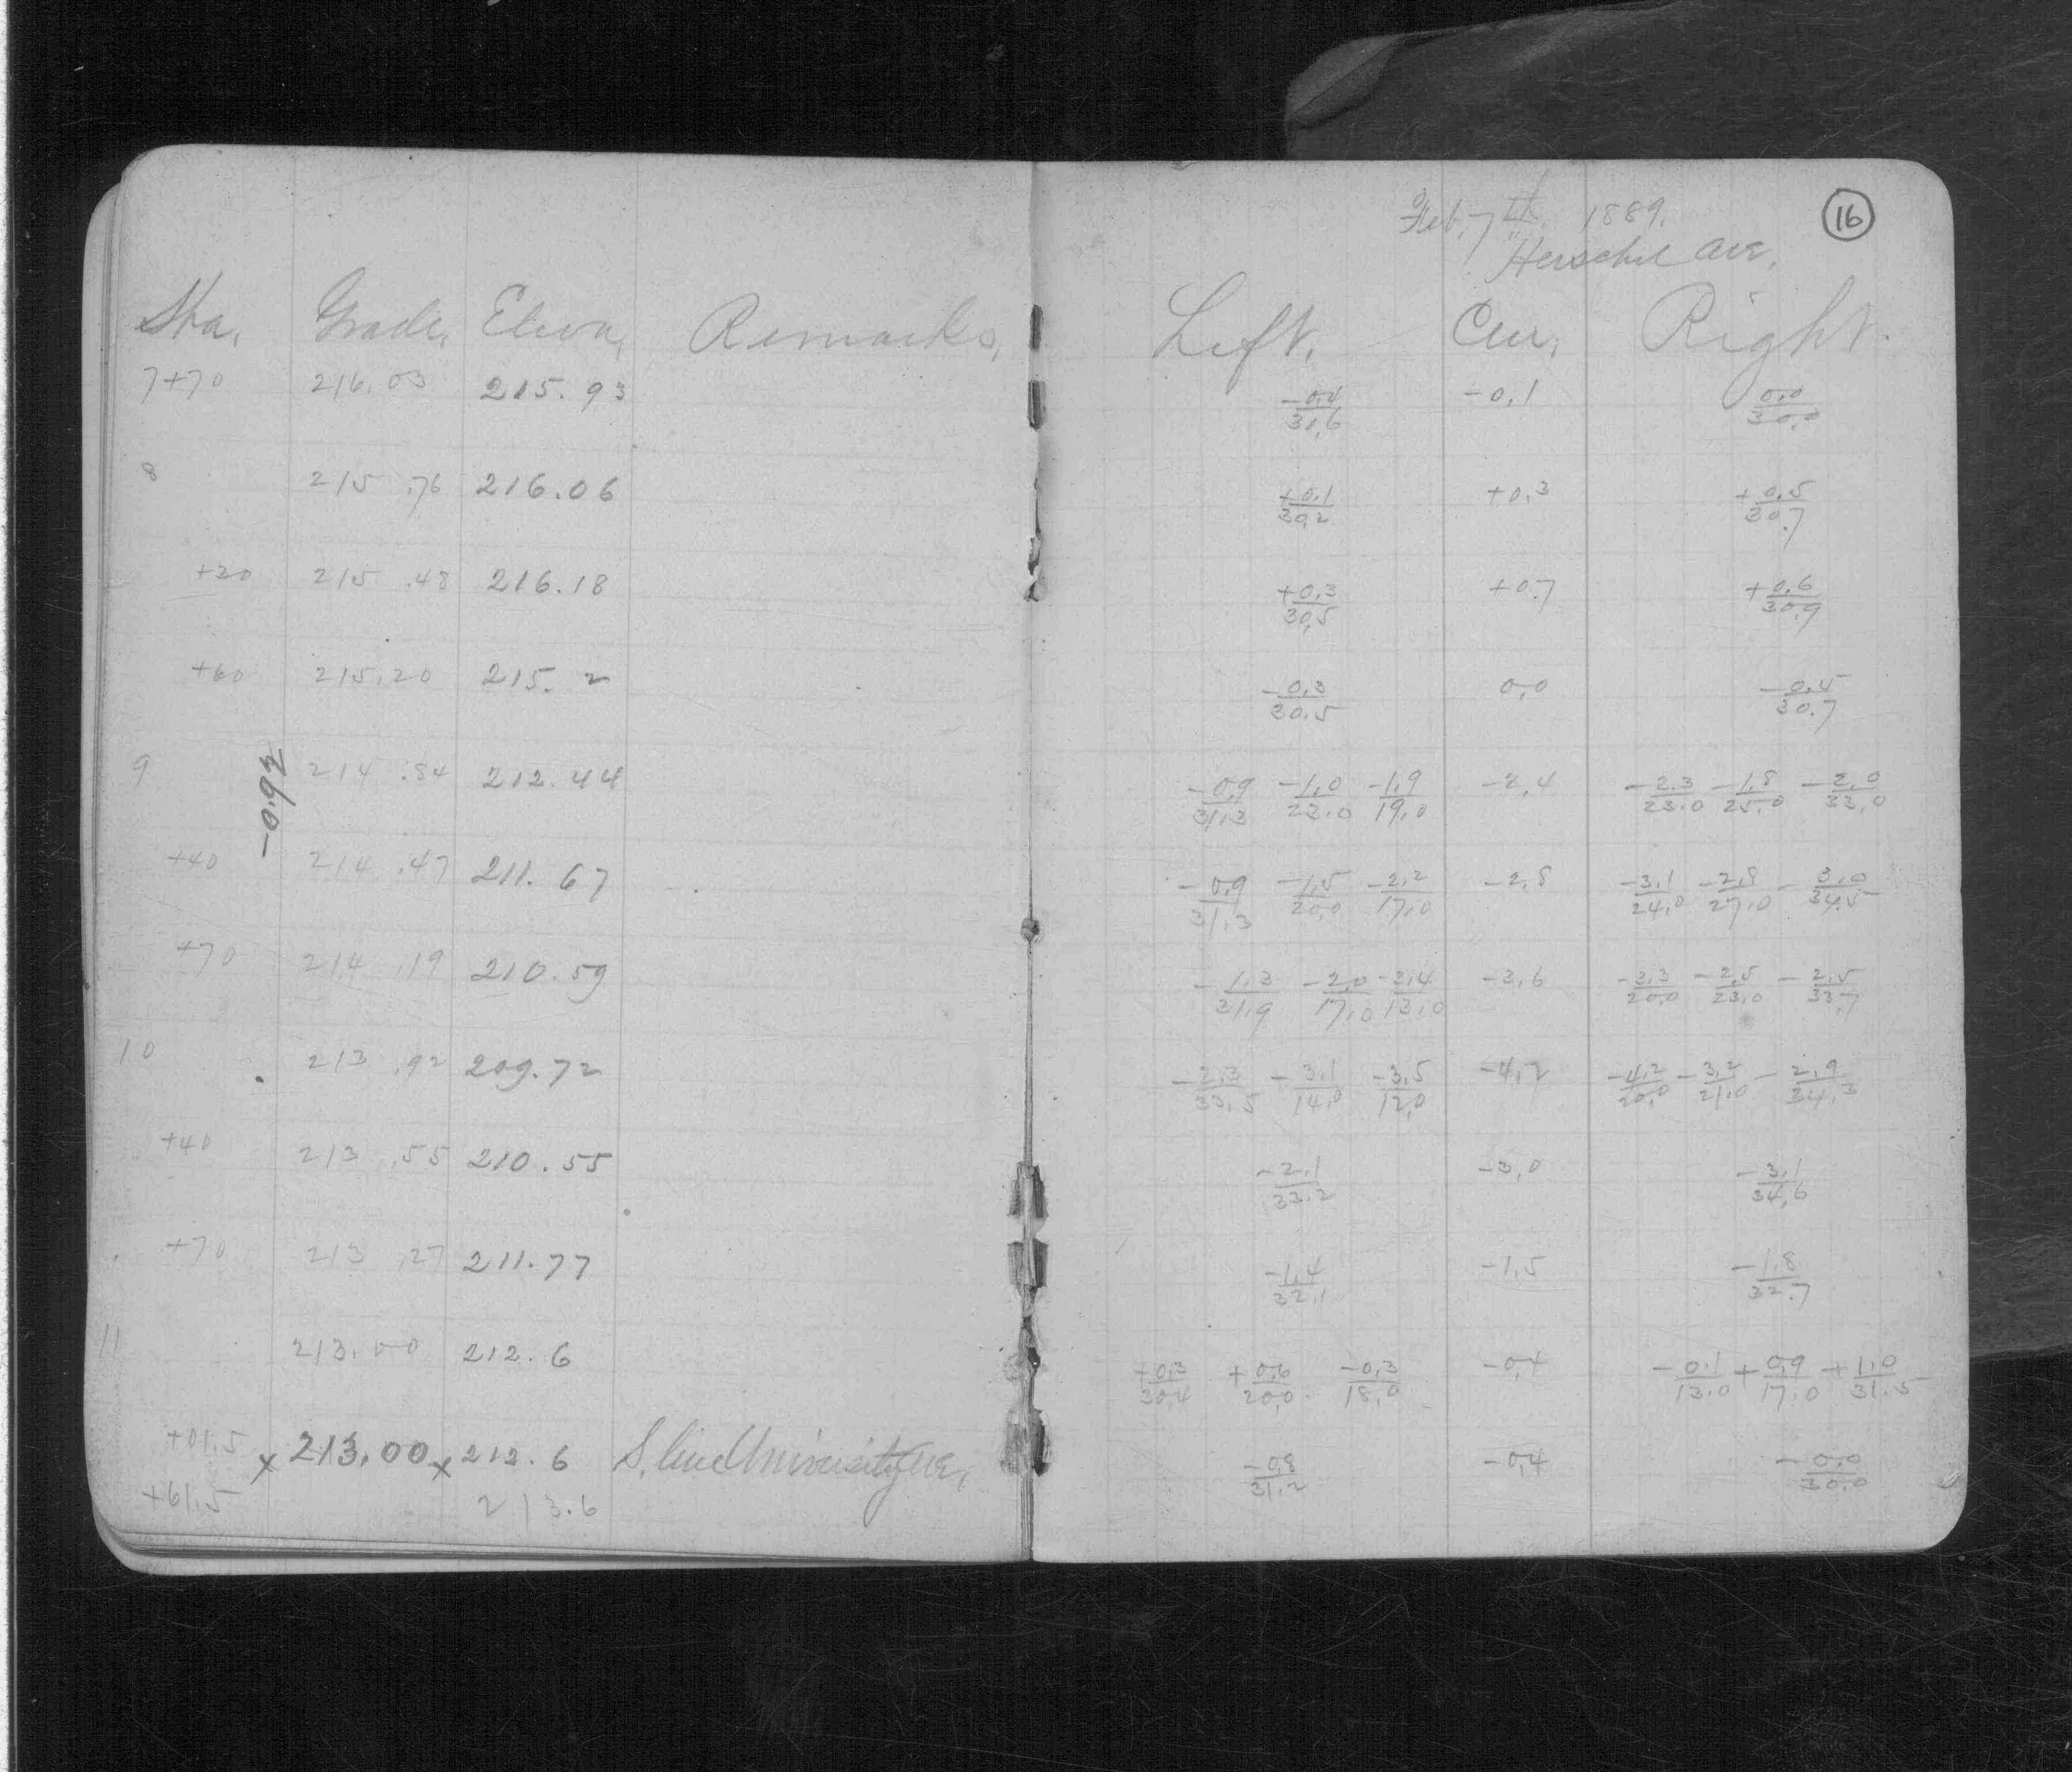 Feb. 7th 1889. 16
Herschel Ave.
Sta. Grade. Eleva. Remarks. Left. Cen. Right.
7+70 216.03 215.93 -0.4/31.6 -0.1 0.0/30.0
8 215.76 216.06 +0.1/30.2 +0.3 +0.5/30.7
+30 215.48 216.18 +0.3/30.5 +0.7 +0.6/30.9
+60 215.20 215.2 -0.3/30.5 0.0 -0.5/30.7
9 214.84 212.44 -0.9/31.3 -1.0/23.0 -1.9/19.0 -2.4 -2.3/23.0 -1.8/25.0 -2.0/33.0
+40 214.47 211.67 -0.9/31.3 -1.5/20.0 -2.2/17.0 -2.8 -3.1/24.0 -2.8/27.0 -3.0/34.5
+70 214.19 210.59 -1.3/31.9 -2.0/17.0 -3.4/13.0 -3.6 -3.3/20.0 -2.5/23.0 -2.5/33.7
10 213.92 209.72 -2.3/33.5 -3.1/14.0 -3.5/12.0 -4.2 -4.2/20.0 -3.2/21.0 -2.9/34.3
+40 213.55 210.55 -2.1/33.2 -3.0 -3.1/34.6
+70 213.27 211.77 -1.4/32.1 -1.5 -1.8/32.7
11 213.00 212.6 +0.3/30.4 +0.6/20.0 -0.3/18.0 -0.4 -0.1/13.0 +0.9/17.0 +1.0/31.5
+01.5 x 213.00 x 212.6 S. line University Ave. -0.8/31.2 -0.4 -0.0/30.0
+61.5 213.6